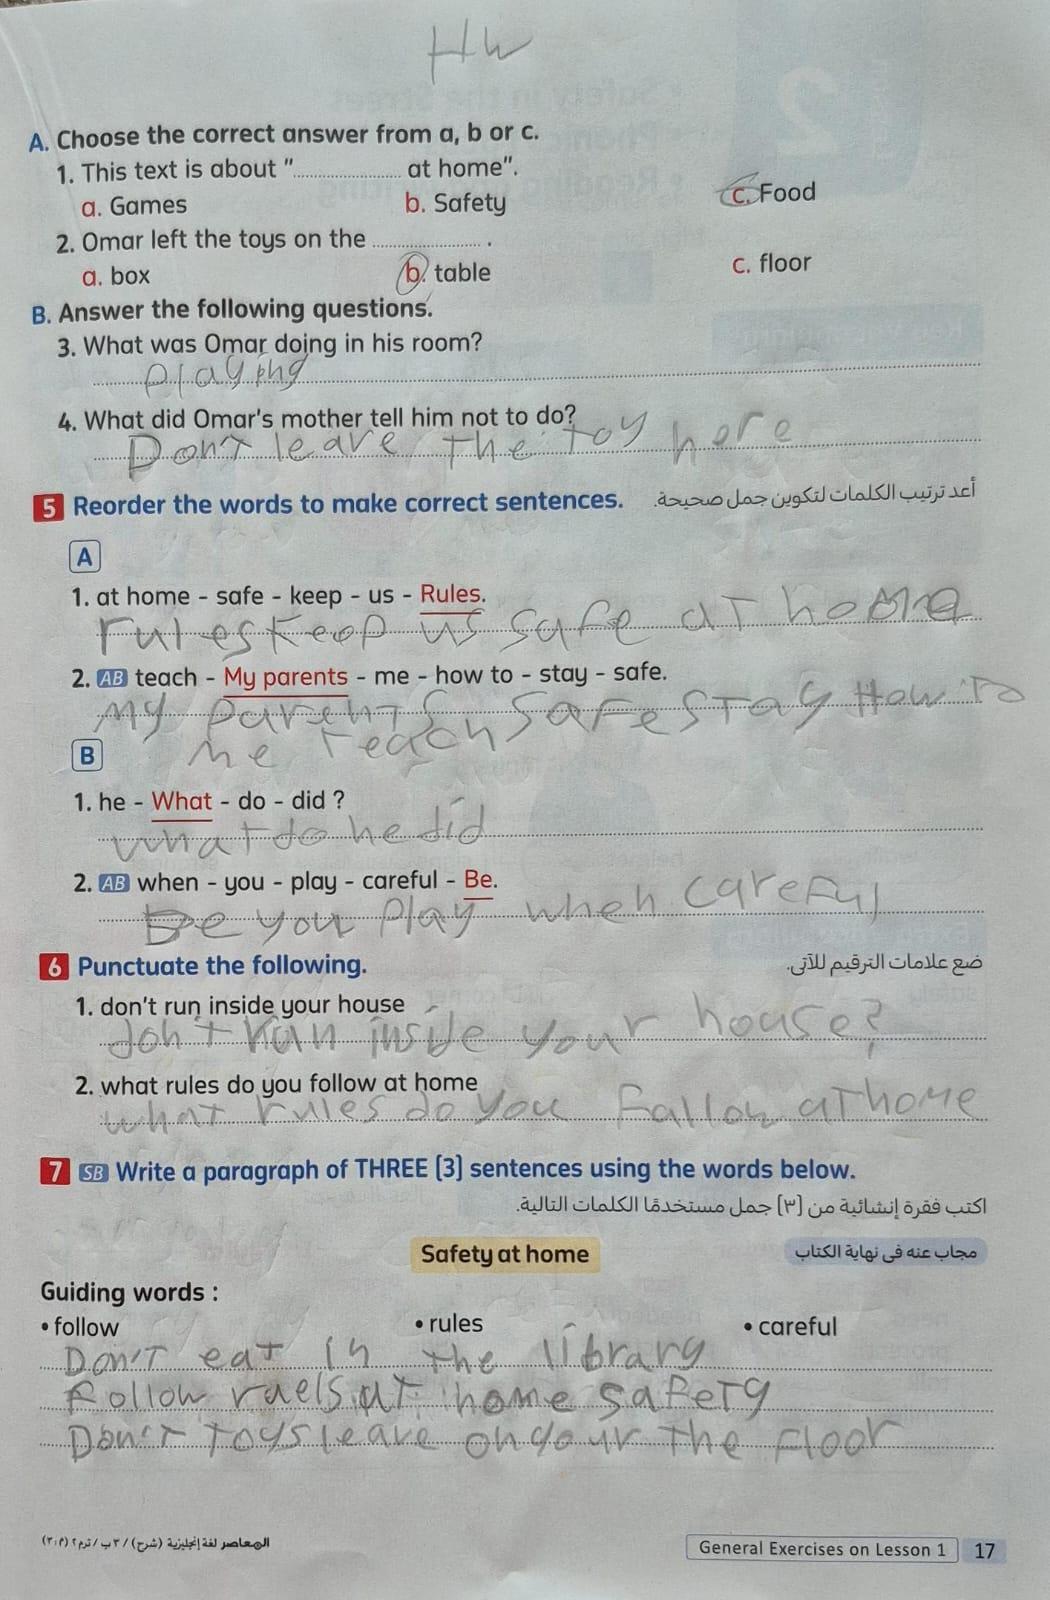 HW
A. Choose the correct answer from a, b or c.
1. This text is about "..................... at home".
a. Games b. Safety c. Food
2. Omar left the toys on the ..................... .
a. box b. table c. floor
B. Answer the following questions.
3. What was Omar doing in his room?
Playing
4. What did Omar's mother tell him not to do?
Don't leave the toy here
5 Reorder the words to make correct sentences. أعد ترتيب الكلمات لتكوين جمل صحيحة.
A
1. at home - safe - keep - us - Rules.
rules keep us safe at home
2. AB teach - My parents - me - how to - stay - safe.
My parents safe stay How to
me teach
B
1. he - What - do - did ?
what do he did
2. AB when - you - play - careful - Be.
Be you play when careful
6 Punctuate the following. ضع علامات الترقيم للآتى.
1. don't run inside your house
don't Run inside your house?
2. what rules do you follow at home
what rules do you Fallow at home
7 SB Write a paragraph of THREE (3) sentences using the words below.
اكتب فقرة إنشائية من (٣) جمل مستخدمًا الكلمات التالية.
Safety at home مجاب عنه فى نهاية الكتاب
Guiding words :
• follow • rules • careful
Don't eat in the library
Follow raels at home safety
Don't toys leave on your the floor
المعاصر لغة إنجليزية (شرح) / ٣ ب / ترم ٢ (م : ٣)
General Exercises on Lesson 1 17